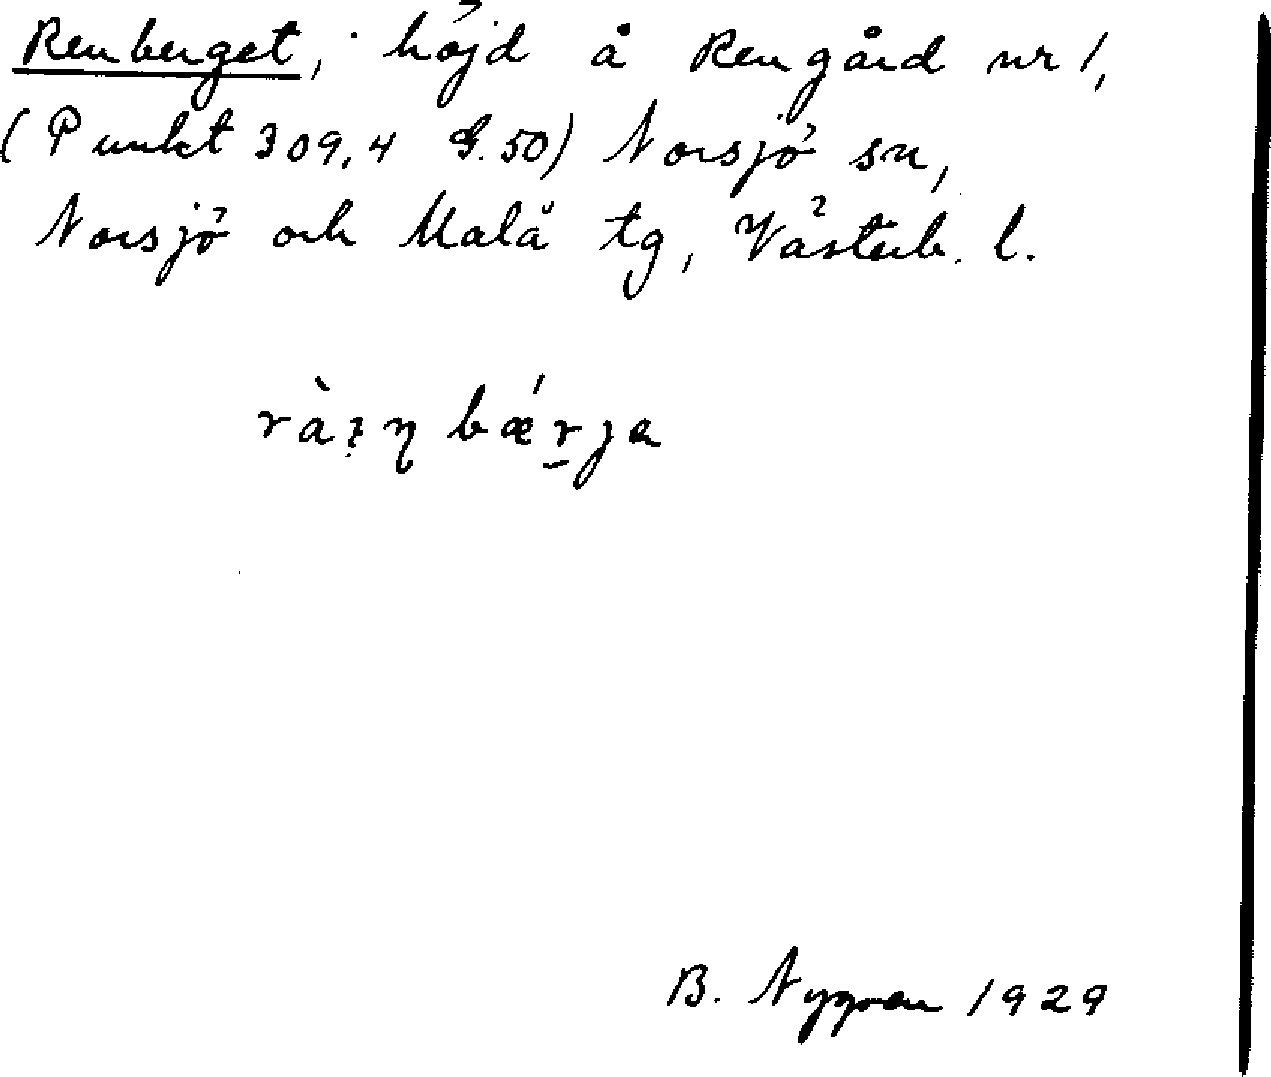 Renberget, höjd å Rengård nr 1,
(Punkt 309,4 G.50) Norsjö sn,
Norsjö och Malå tg, Västerb. l.
bǽrja
B. Nygren 1929